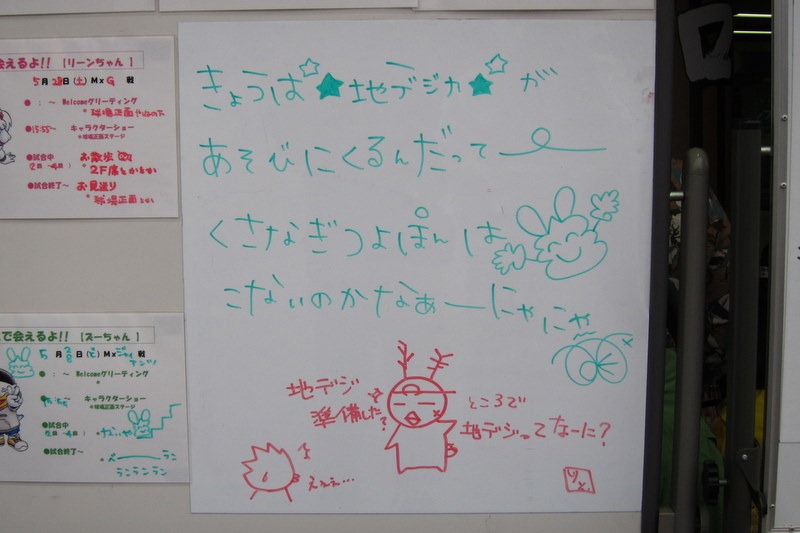 会えるよ!! [リーンちゃん]
5月28日(土) M×G 戦
● : ～ Welcomeグリーティング
●15:55～ キャラクターショー
*球場正面ステージ
●試合中 お散歩
*2F席とか
●試合終了～ お見送り
*球場正面
きょうは★地デジカ★が
あそびにくるんだって
くさなぎつよぽんは
こないのかなぁーにゃにゃ
地デジ
準備した?
ところで
地デジってなーに?
えぇぇ…
で会えるよ!! [スーちゃん]
● : ～ Welcomeグリーティング
キャラクターショー
*球場正面ステージ
●試合中
●試合終了～
ランランラン